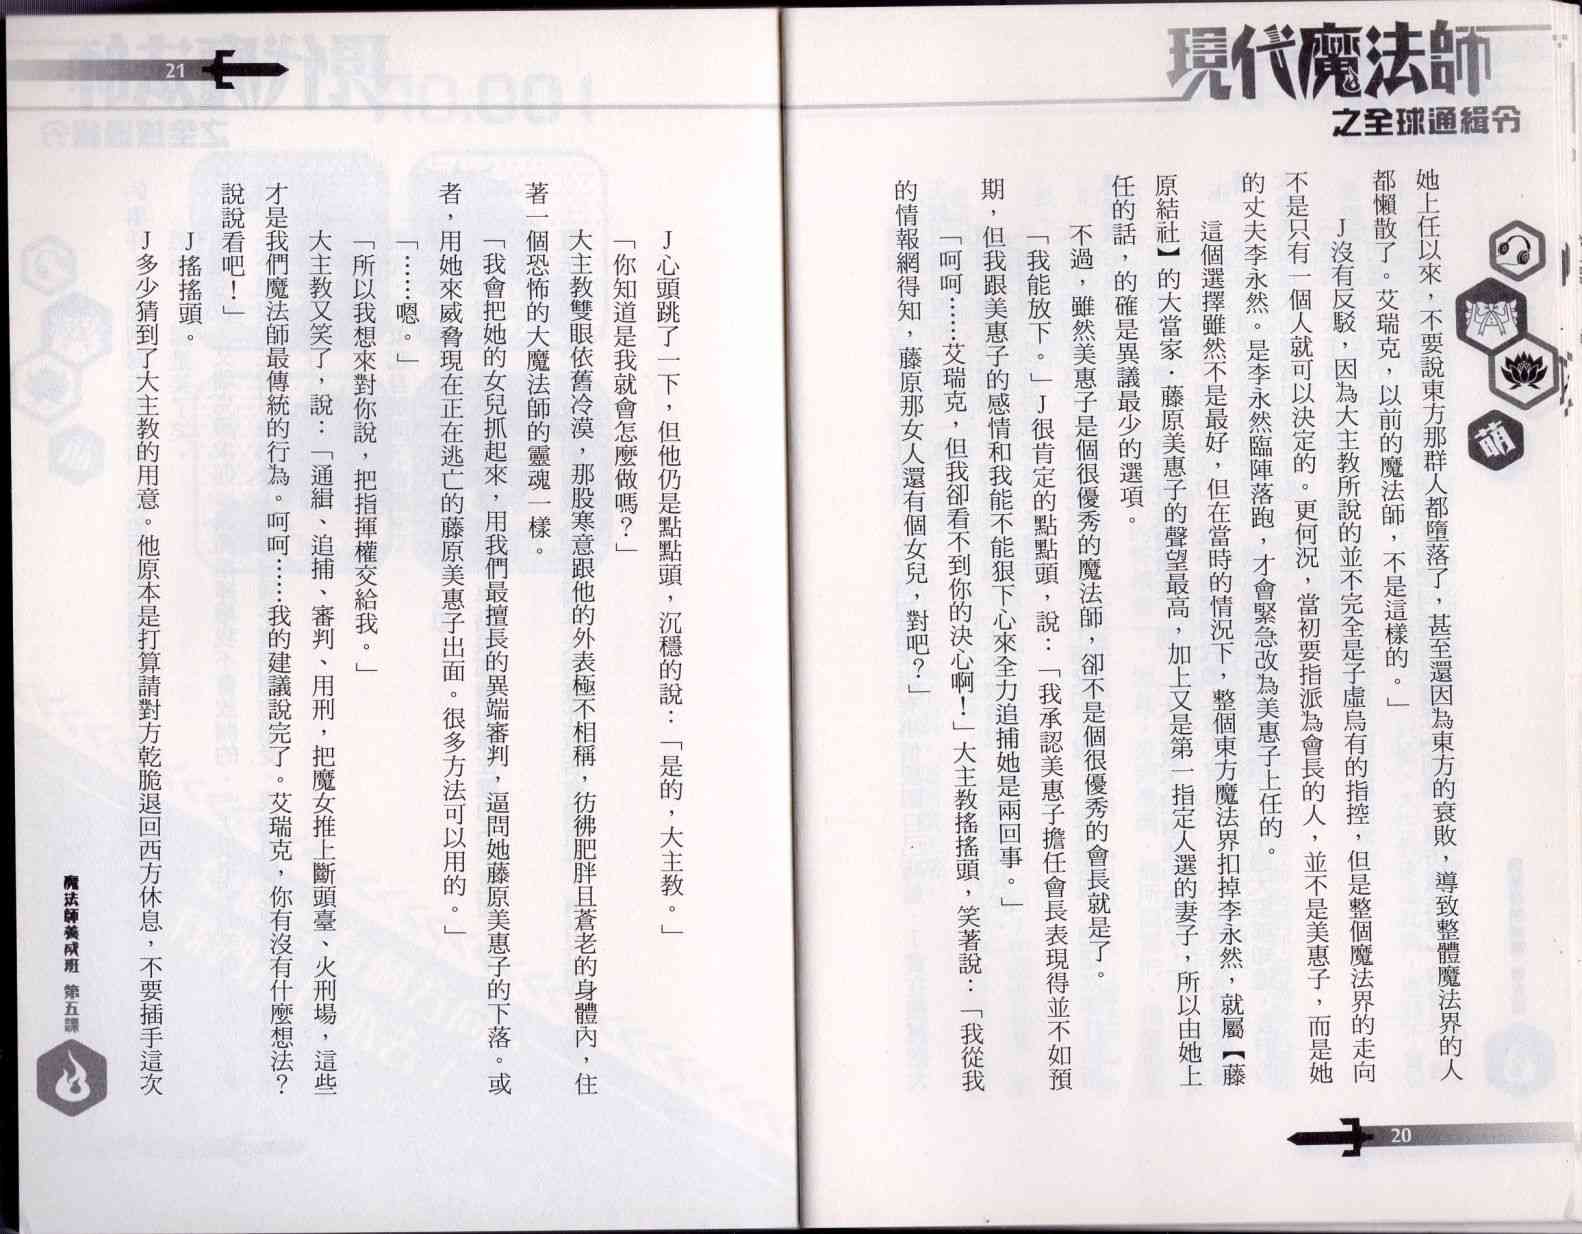 現代魔法師
之全球通緝令
萌
她上任以來，不要說東方那群人都墮落了，甚至還因為東方的衰敗，導致整體魔法界的人
都懶散了。艾瑞克，以前的魔法師，不是這樣的。」
J沒有反駁，因為大主教所說的並不完全是子虛烏有的指控，但是整個魔法界的走向
不是只有一個人就可以決定的。更何況，當初要指派為會長的人，並不是美惠子，而是她
的丈夫李永然。是李永然臨陣落跑，才會緊急改為美惠子上任的。
這個選擇雖然不是最好，但在當時的情況下，整個東方魔法界扣掉李永然，就屬【藤
原結社】的大當家．藤原美惠子的聲望最高，加上又是第一指定人選的妻子，所以由她上
任的話，的確是異議最少的選項。
不過，雖然美惠子是個很優秀的魔法師，卻不是個很優秀的會長就是了。
「我能放下。」J很肯定的點點頭，說：「我承認美惠子擔任會長表現得並不如預
期，但我跟美惠子的感情和我能不能狠下心來全力追捕她是兩回事。」
「呵呵……艾瑞克，但我卻看不到你的決心啊！」大主教搖搖頭，笑著說：「我從我
的情報網得知，藤原那女人還有個女兒，對吧？」
20
21
J心頭跳了一下，但他仍是點點頭，沉穩的說：「是的，大主教。」
「你知道是我就會怎麼做嗎？」
大主教雙眼依舊冷漠，那股寒意跟他的外表極不相稱，彷彿肥胖且蒼老的身體內，住
著一個恐怖的大魔法師的靈魂一樣。
「我會把她的女兒抓起來，用我們最擅長的異端審判，逼問她藤原美惠子的下落。或
者，用她來威脅現在正在逃亡的藤原美惠子出面。很多方法可以用的。」
「……嗯。」
「所以我想來對你說，把指揮權交給我。」
大主教又笑了，說：「通緝、追捕、審判、用刑，把魔女推上斷頭臺、火刑場，這些
才是我們魔法師最傳統的行為。呵呵……我的建議說完了。艾瑞克，你有沒有什麼想法？
說說看吧！」
J搖搖頭。
J多少猜到了大主教的用意。他原本是打算請對方乾脆退回西方休息，不要插手這次
魔法師養成班 第五課